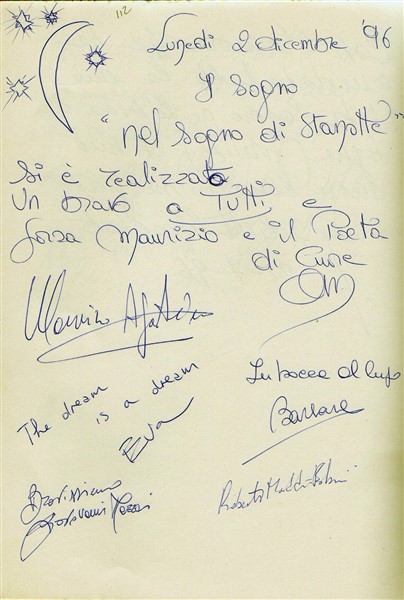 112
Lunedì 2 dicembre '96
Il sogno
"nel sogno di Stanotte"
si è realizzato
Un bravo a Tutti e
forza Maurizio e il Poeta
di Cuore
The dream
is a dream
Eva
In bocca al lupo
Barbara
Bravissimo
Giovanni
Roberto